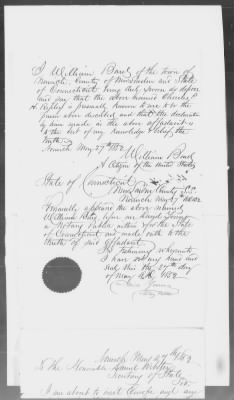 I William Bond of the town of
Norwich, County of New London and State
of Connecticut being duly sworn do depose
and say that the above named Charles
H. Ripley is personally known to me to be the
person above described and that the declaration
by him made in the above affidavit is
to the best of my knowledge & belief the
truth.
Norwich May 27th 1852
William Bond
A Citizen of the United States
State of Connecticut
New London County
Norwich May 27th 1852
Personally appeared the above named
William before me
a Notary Public within & for the State
of Connecticut and made oath to the
truth of said affidavit.
In testimony whereunto
I have set my name and
seal this the 27th day
of May 1852
Norwich May 27th 1852
To the Honorable Daniel Webster
Secretary of State
Sir
I am about to visit Europe and am